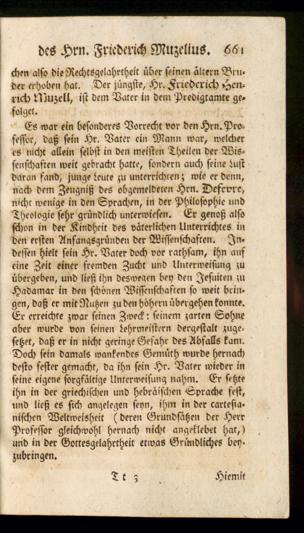 des Hrn. Friederich Muzelius. 661
chen also die Rechtsgelahrtheit über seinen ältern Bru-
der erhoben hat. Der jüngste, Hr. Friederich Hen-
rich Muzell, ist dem Vater in dem Predigtamte ge-
folget.
Es war ein besonderes Vorrecht vor den Hrn. Pro-
fessor, daß sein Hr. Vater ein Mann war, welcher
es nicht allein selbst in den meisten Theilen der Wis-
senschaften weit gebracht hatte, sondern auch seine Lust
daran fand, junge Leute zu unterrichten; wie er denn,
nach dem Zeugniß des obgemeldeten Hrn. Defevre,
nicht wenige in den Sprachen, in der Philosophie und
Theologie sehr gründlich unterwiesen. Er genoß also
schon in der Kindheit des väterlichen Unterrichtes in
den ersten Anfangsgründen der Wissenschaften. In-
dessen hielt sein Hr. Vater doch vor rathsam, ihn auf
eine Zeit einer fremden Zucht und Unterweisung zu
übergeben, und ließ ihn deswegen bey den Jesuiten zu
Hadamar in den schönen Wissenschaften so weit brin-
gen, daß er mit Nutzen zu den höhern übergehen konnte.
Er erreichte zwar seinen Zweck: seinem zarten Sohne
aber wurde von seinen Lehrmeistern dergestalt zuge-
setzet, daß er in nicht geringe Gefahr des Abfalls kam.
Doch sein damals wankendes Gemüth wurde hernach
desto fester gemacht, da ihn sein Hr. Vater wieder in
seine eigene sorgfältige Unterweisung nahm. Er setzte
ihn in der griechischen und hebräischen Sprache fest,
und ließ es sich angelegen seyn, ihm in der cartesia-
nischen Weltweisheit (deren Grundsätzen der Herr
Professor gleichwohl hernach nicht angeklebet hat,)
und in der Gottesgelahrtheit etwas Gründliches bey-
zubringen.
T t 3 Hiemit